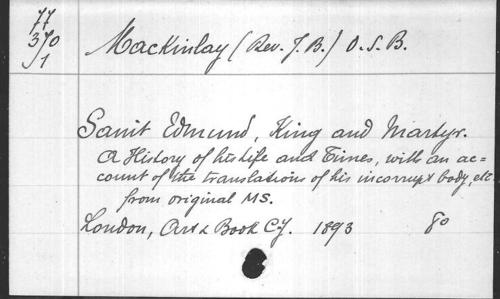 77
370
1
Mackinlay (Rev. J. B.) O. S. B.
Saint Edmund, King and Martyr.
A History of his Life and Times, with an ac=
count of the translations of his incorrupt body, etc.
from original MS.
London, Art & Book Cy. 1893 8o